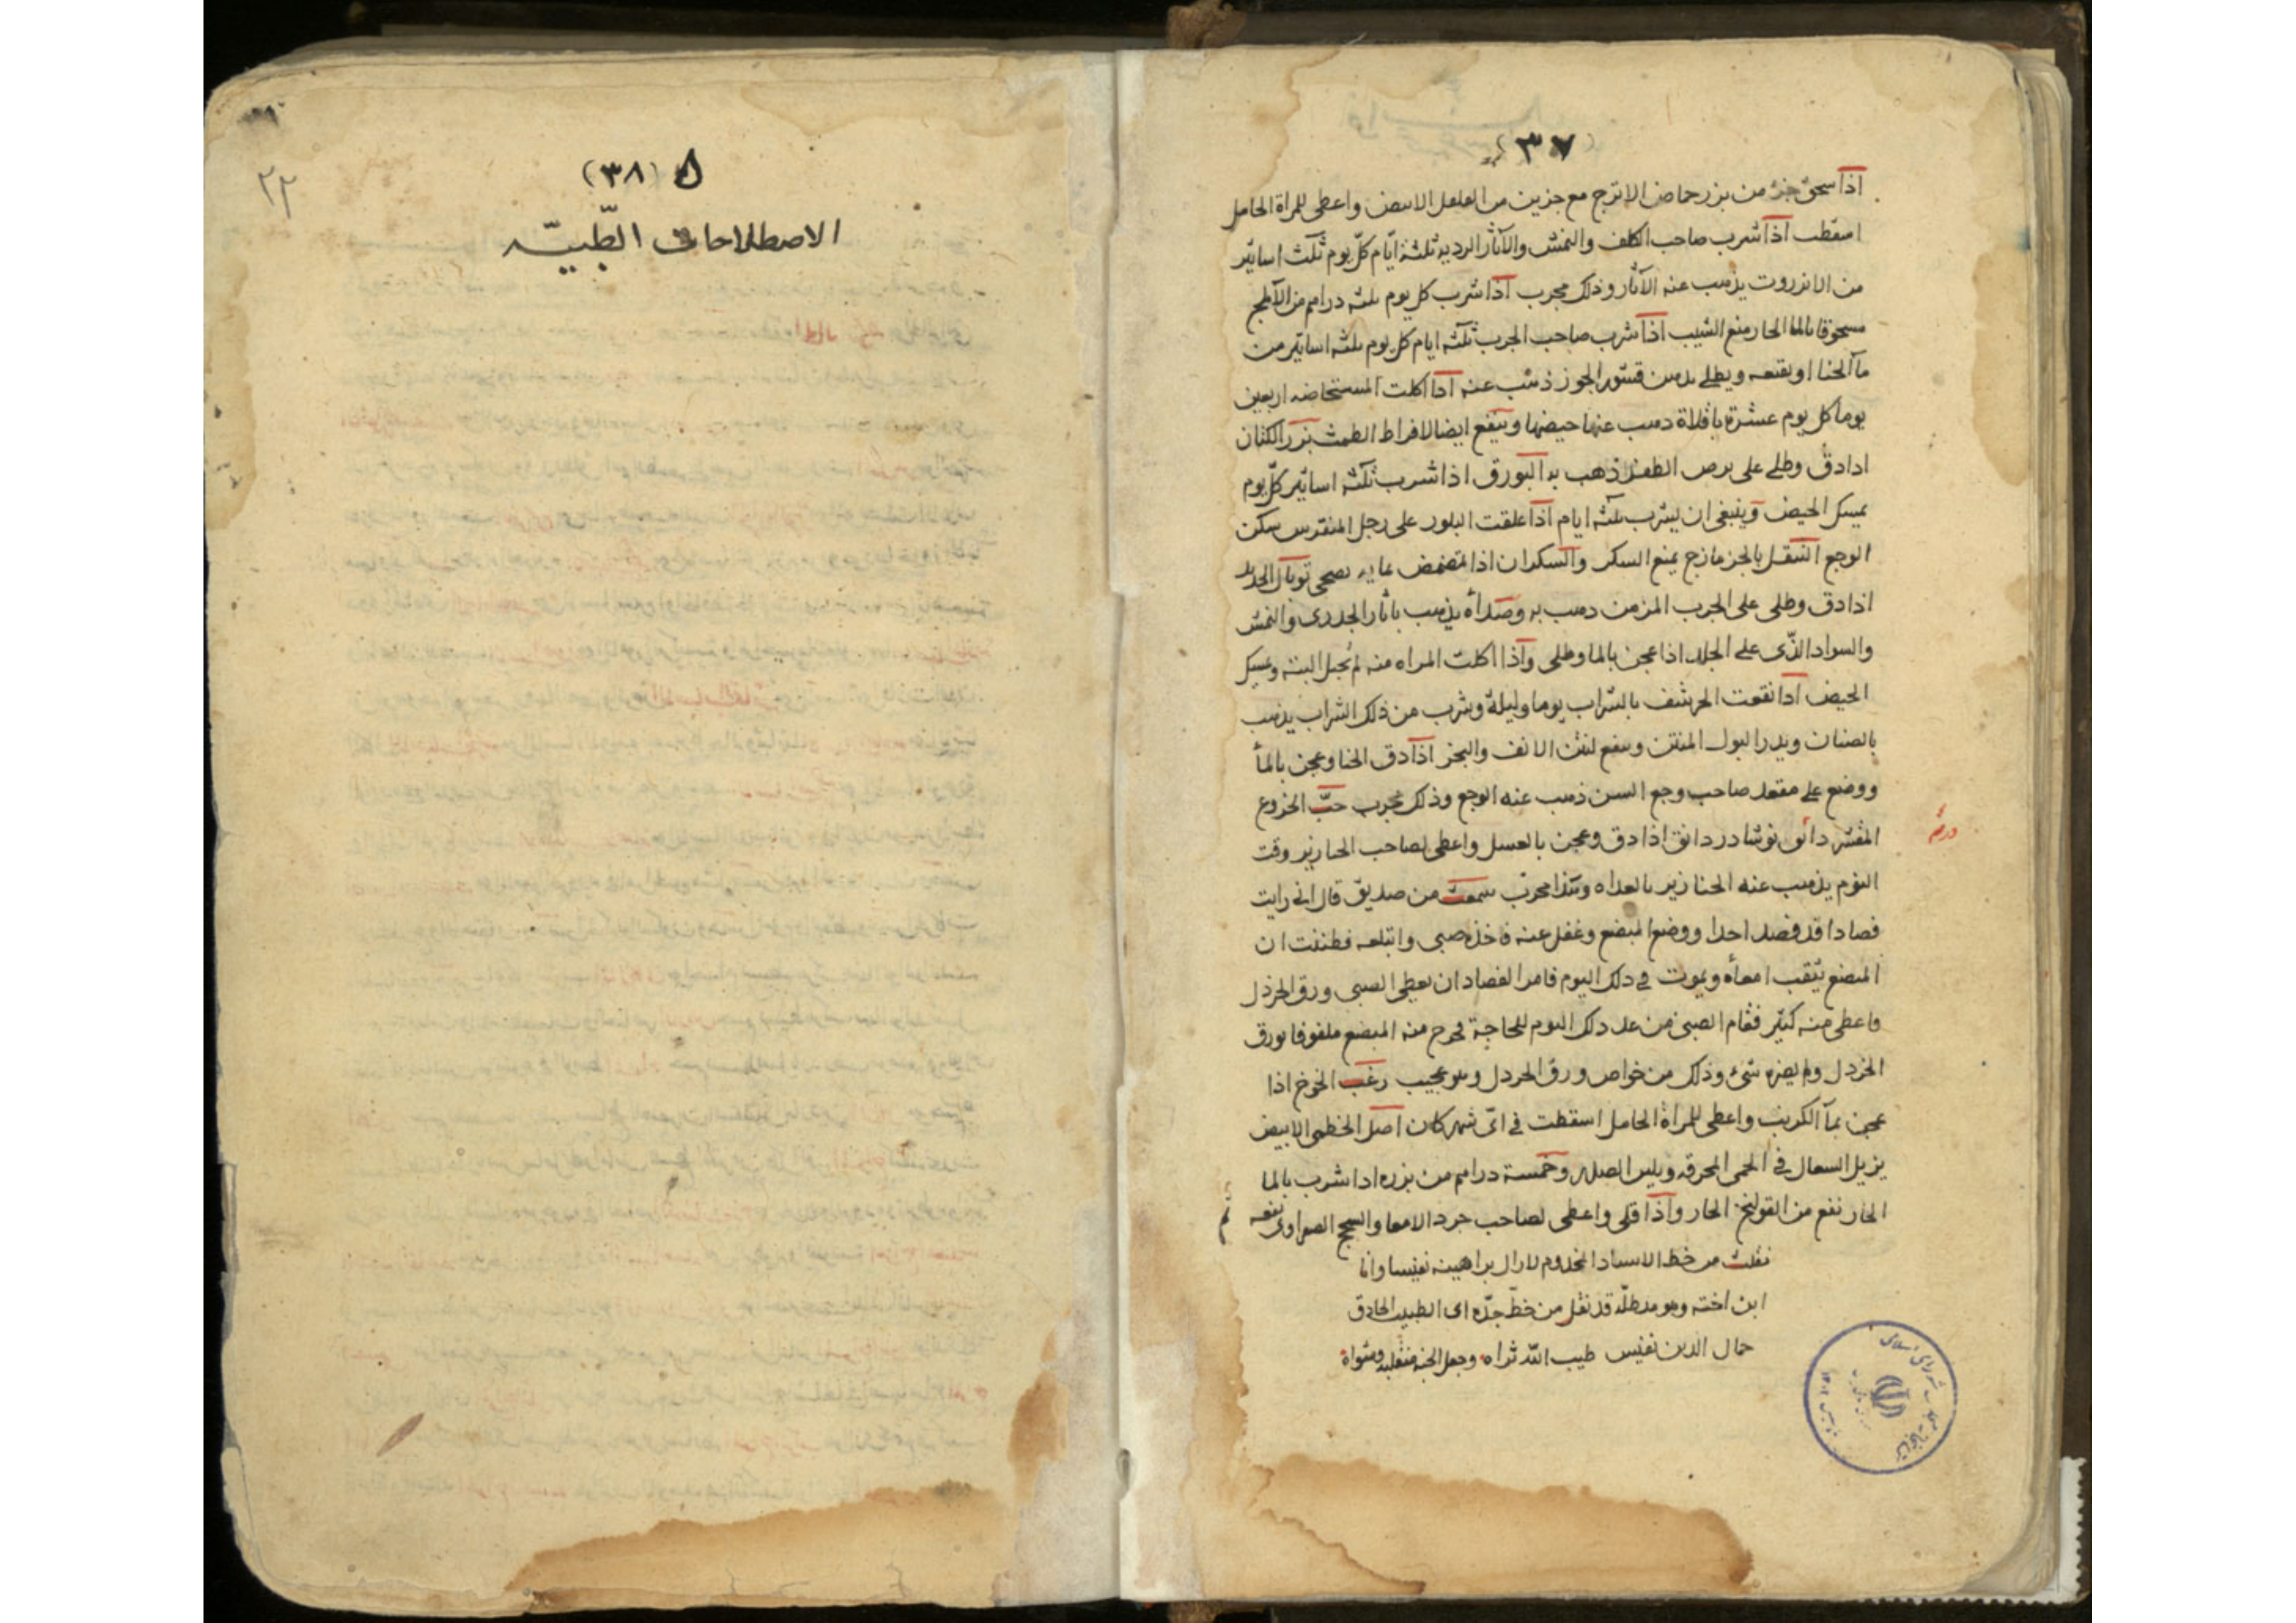 (٣٧)
اذا سحق جزء من بزر حماض الاترج مع جزين من الفلفل الابيض واعطى للمراة الحامل
اسقطت اذا شرب صاحب الكلف والنمش والآثار الرديه ثلثة ايّام كلّ يوم ثلث اساتير
من الانزروت يذهب عنه الآثار وذلك مجرب اذا شرب كل يوم ثلثه دراهم من الآملج
مسحوقا بالما الحار منع الشيب اذا شرب صاحب الجرب ثلثه ايام كل يوم ثلثه اساتير من
مآ الحنا او بقنعه ويطلى بدهن قشور الجوز ذهب عنه اذا اكلت المستحاضه اربعين
يوما كل يوم عشرة باقلاة ذهب عنها حيضها وينفع ايضا لافراط الطمث بزر الكتان
اذا دق وطلى على برص الظفر ذهب به البورق اذا شرب ثلثه اساتير كلّ يوم
يمسك الحيض وينبغى ان يشرب ثلثه ايام اذا علقت البلور على رجل المنقرس سكن
الوجع التنقل بالجزمازج يمنع السكر والسكران اذا تمضمض بمايه يصحى توبال الحديد
اذا دق وطلى على الجرب المزمن ذهب به وصداه يذهب باثار الجدرى والنمش
والسواد الذّى على الجلد اذا عجن بالما وطلى واذا اكلت المراه منه لم تحبل البتة ويمسك
الحيض اذا نقعت الحرشف بالشراب يوما وليلة وشرب من ذلك الشراب يذهب
بالصنان ويدر البول المنتن وينفع لنتن الانف والبخر اذا دق الحنا وعجن بالمآ
ووضع على مقعد صاحب وجع السن ذهب عنه الوجع وذلك مجرب حبّ الخروع
المقشر دانق نوشادر دانق اذا دق وعجن بالعسل واعطى لصاحب الخنازير وقت
درهم
النوم يذهب عنه الخنازير بالغداه وهذا مجرّب سمعت من صديق قال انى رايت
فصادا قد فصد احدا ووضع المبضع وغفل عنه فاخذه صبى وابتلعه فظننت ان
المبضع يثقب امعآه ويموت فى ذلك اليوم فامر الفصاد ان يعطى الصبى ورق الخردل
فاعطى منه كثير فقام الصبى من غد ذلك اليوم للحاجة فخرج منه المبضع ملفوفا بورق
الخردل ولم يضره شئ وذلك من خواص ورق الخردل وهو عجيب زغب الخوخ اذا
عجن بمآ الكرنب واعطى للمراة الحامل اسقطت فى اىّ شهر كان اصل الخطمى الابيض
يزيل السعال فى الحمى المحرقه ويلين الصدر وخمسة دراهم من بزره اذا شرب بالما
الحار نفع من القولنج الحار واذا قلى واعطى لصاحب جرد الامعا والسحج الصفراوى نفعه
تم
نقلت من خط الاستاد المخدوم نفيسا وانا
ابن اخته وهو مد ظلّه قد نقل من خطّ جدّه اى الطبيب الحاذق
جمال الدين نفيس طيب اللّه ثراه وجعل الجنه منقلبه ومثواه
٢٢
۵ (٣٨)
الاصطلاحات الطّبيّه